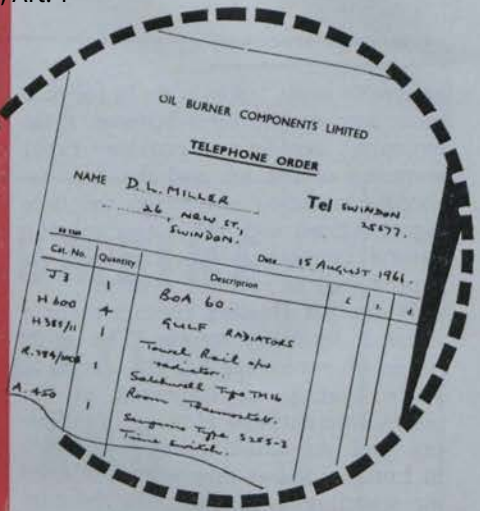 OIL BURNER COMPONENTS LIMITED
TELEPHONE ORDER
NAME D. L. MILLER Tel SWINDON
26, NEW ST., 25577.
SWINDON.
Date 15 AUGUST 1961.
Cat. No. Quantity Description £ s. d.
J3 1 BOA 60.
H 600 4 GULF RADIATORS
H385/11 1 Towel Rail c/w
radiator.
1 Satchwell Type TM16
Room Thermostat.
A. 450 1 Sangamo Type S255-3
Time Switch.